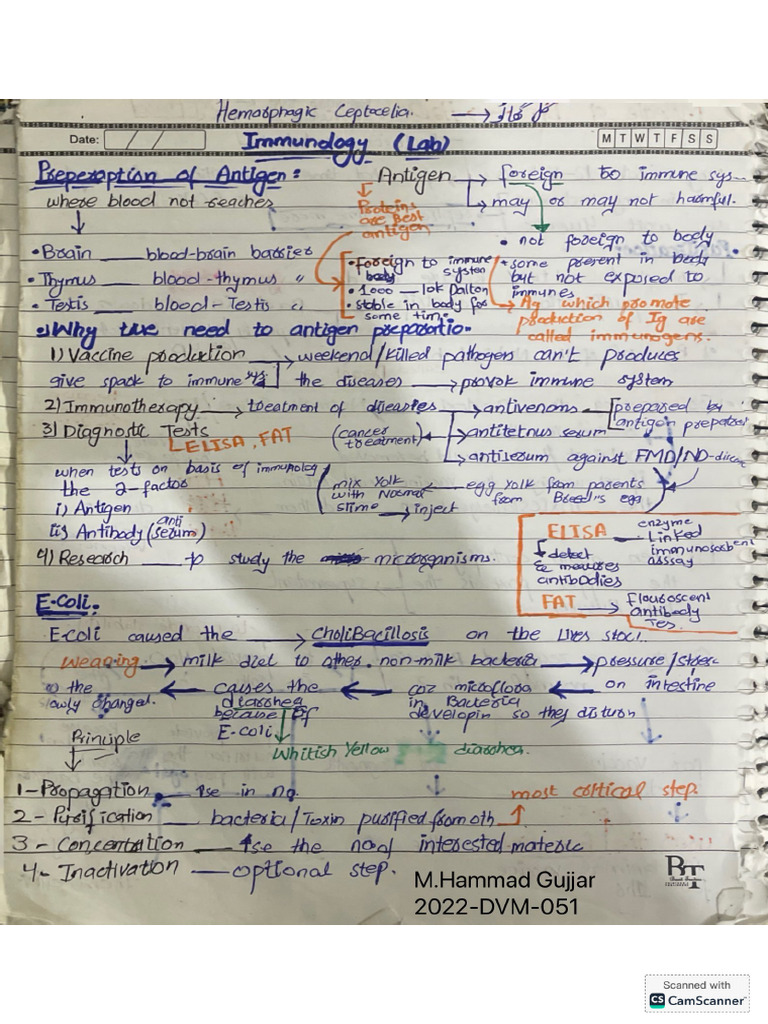 Hemorrhagic Ceptocelia. →
Date: / / M T W T F S S
Immunology (Lab)
Preperaption of Antigen: Antigen → foreign to immune sys-
where blood not reaches → may or may not harmful.
Proteins are Best antigen
• not foreign to body
• some present in body but not exposed to immunes
• Brain ___ blood-brain barrier
• Thymus ___ blood-thymus "
• Testis ___ blood-Testis "
• foreign to immune system
body
• 1000 — 10k Dalton
• stable in body for some tim.
→ Ag which promote production of Ig are called immunogens.
Why we need to antigen preparatio.
1) Vaccine production → weekend/killed pathogens can't produces
give spack to immune sys the diseases → provok immune system
2) Immunotherapy → treatment of diseases → antivenoms ← prepared by antigen
3) Diagnostic Tests
ELISA, FAT
(cancer treatment) ← → antitetnus serum
→ antiserum against FMD/ND-
when tests on basis of immunolog
the 2-factor
i) Antigen
ii) Antibody (anti serum)
mix Yolk with Normal slime ← egg yolk from parents from Breed's egg
→ inject
ELISA — enzyme Linked immunosorbent asssay
↳ detect & measures antibodies
FAT → flouroscent antibody Tes.
4) Research → study the microrganisms.
E-Coli:
E-coli caused the → CholiBacillosis on the Lives stock.
Weaging → milk diet to other. non-milk bacteria → pressure/stress
the ← causes the ← coz microflora ← on intestine
owly changed. diarrhea in Bacteria
because of developin so they disturn
E-coli
Whitish Yellow diarrhea.
Principle
1- Propagation ___ ↑se in no. most cortical step.
2- Purification ___ bacteria/Toxin purified from oth
3- Concentration ___ ↑se the no of interested materic
4- Inactivation ___ optional step.
M.Hammad Gujjar
2022-DVM-051
RT
Scanned with
CS CamScanner